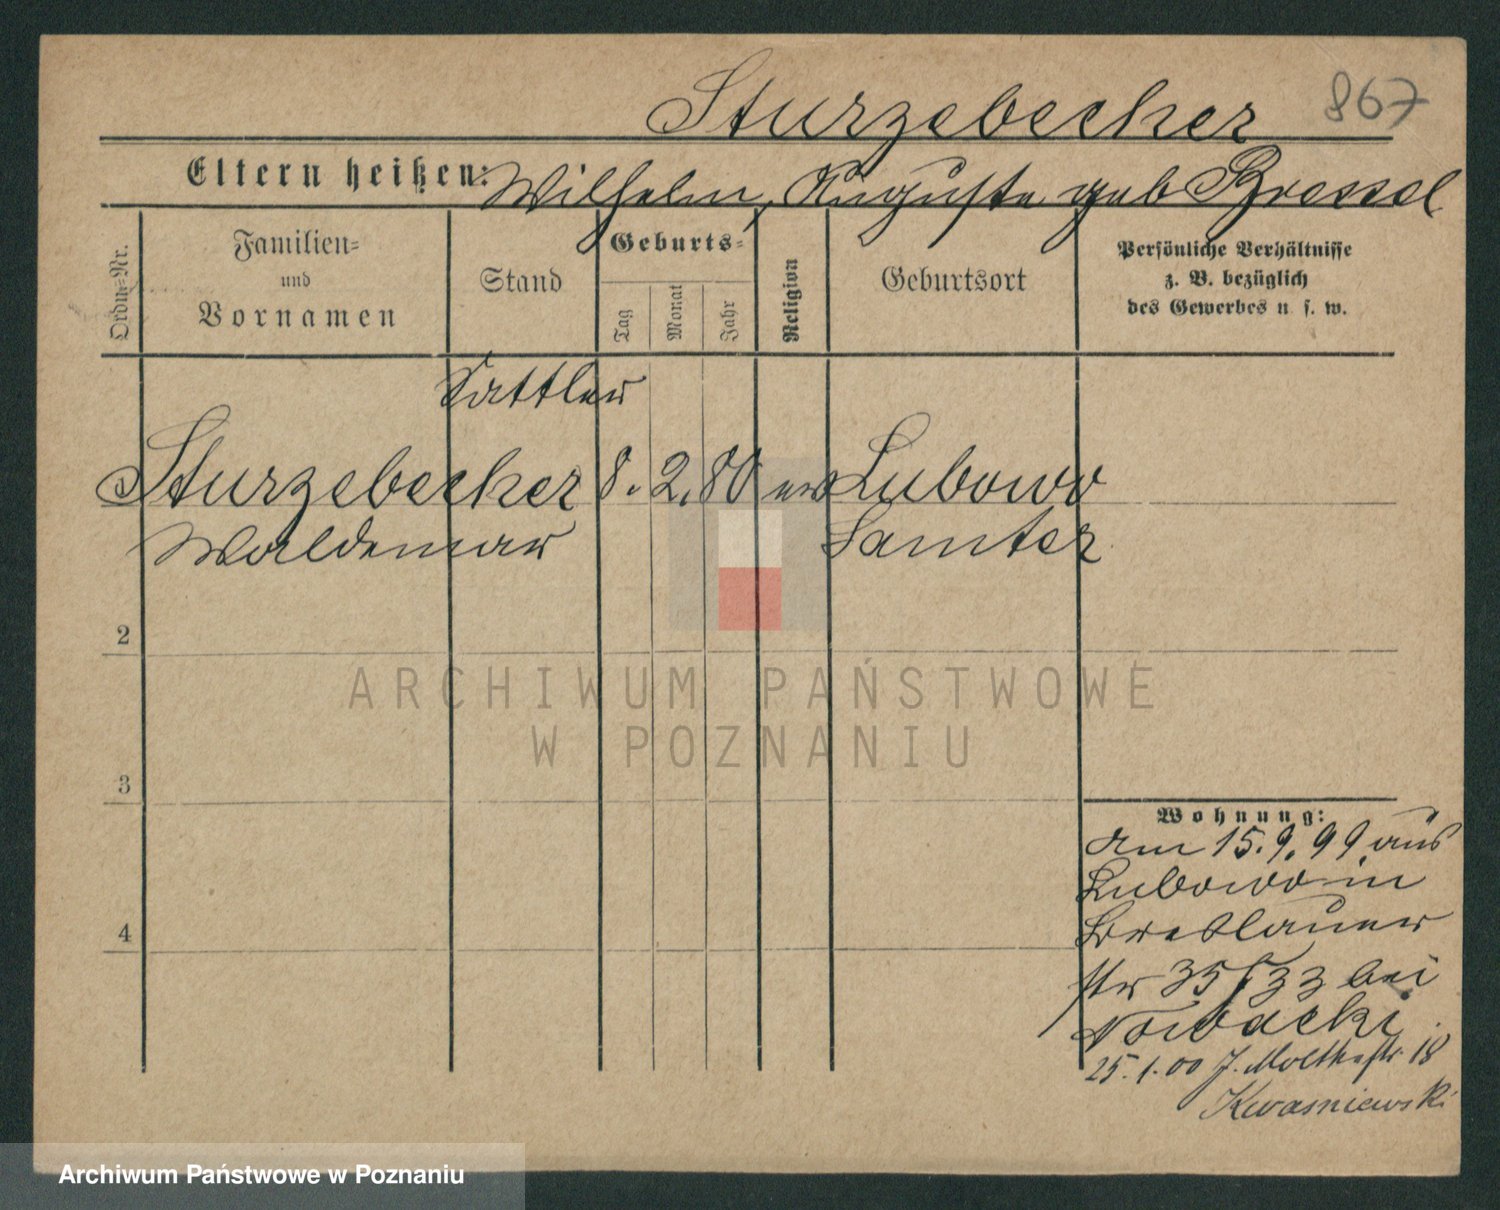 Sturzebecher 867
Eltern heißen: Wilhelm, Auguste geb
Ordn=Nr.
Familien=
und
Vornamen
Stand
Geburts=
Tag
Monat
Jahr
Religion
Geburtsort
Persönliche Verhältnisse
z. B. bezüglich
des Gewerbes u s. w.
Sattler
Sturzebecher 8. 2. 80 ev Lubowo
Waldemar Samter
2
3
4
ARCHIWUM PAŃSTWOWE
W POZNANIU
Wohnung:
Am 15. 9. 99 aus
Lubowo in
Breslauer
str 35 bei
Nowacki
25. 1. 00 J. Moltkestr. 18
Kwasniewski
Archiwum Państwowe w Poznaniu